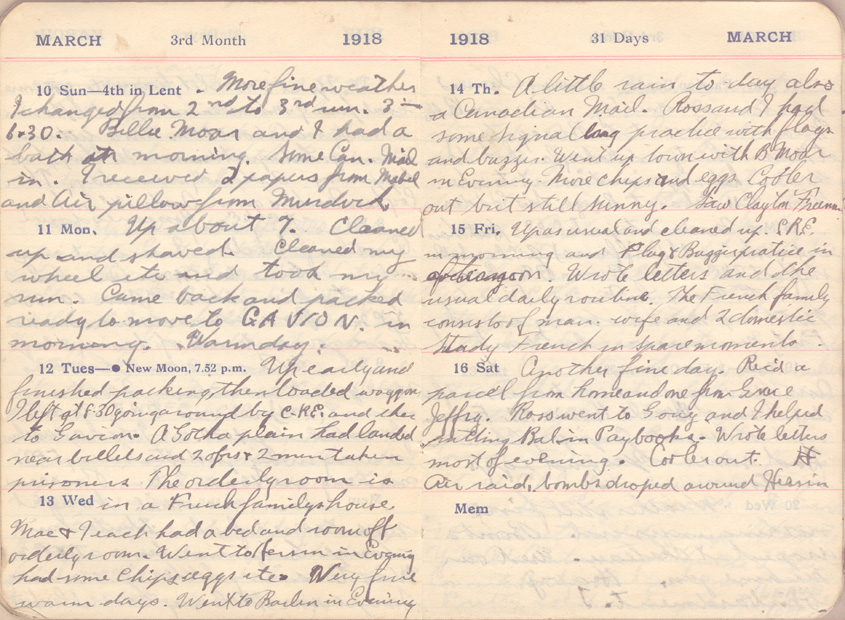 MARCH 3rd Month 1918
10 Sun—4th in Lent . More fine weather
I changed from 2nd to 3rd run. 3 —
6.30. Billie Moar and I had a
bath in morning. Some Can. Mail
in. I received 2 papers from Mabel
and Air pillow from Murdock
11 Mon. Up about 7. Cleaned
up and shaved. Cleaned my
wheel etc and took my
run. Came back and packed
ready to move to GAVION. in
morning. Warm day.
12 Tues—● New Moon, 7.52 p.m. Up early and
finished packing, then loaded waggon
I left at 8.30 going around by C.R.E. and then
to Gavion. A Gotha plain had landed
near billets and 2 ofrs & 2 men taken
prisoners The orderly room is
13 Wed in a French familys house,
Mac & I each had a bed and room off
orderly room. Went to in Evening
had some Chips eggs etc. Very fine
warm days. Went to Barlin in Evening
1918 31 Days MARCH
14 Th. A little rain to day also
a Canadian Mail. Ross and I had
some signal practice with flags
and buzzer. Went up town with B Moar
in Evening. More chips and eggs Cooler
out but still sunny. Saw Clayton
15 Fri. Up as usual and cleaned up. C.R.E.
in morning and Flag & Buzzer pratice in
afternoon. Wrote letters and the
usual daily routine. The French family
consists of man. wife and 2 domestic
Study French in spare moments.
16 Sat Another fine day. Rec'd a
parcel from home and one from Grace
Jeffry. Ross went to Gouy and I helped
Bal. in Paybooks. Wrote letters
most of evening. Cooler out.
Air raid, bombs droped around Hersin
Mem